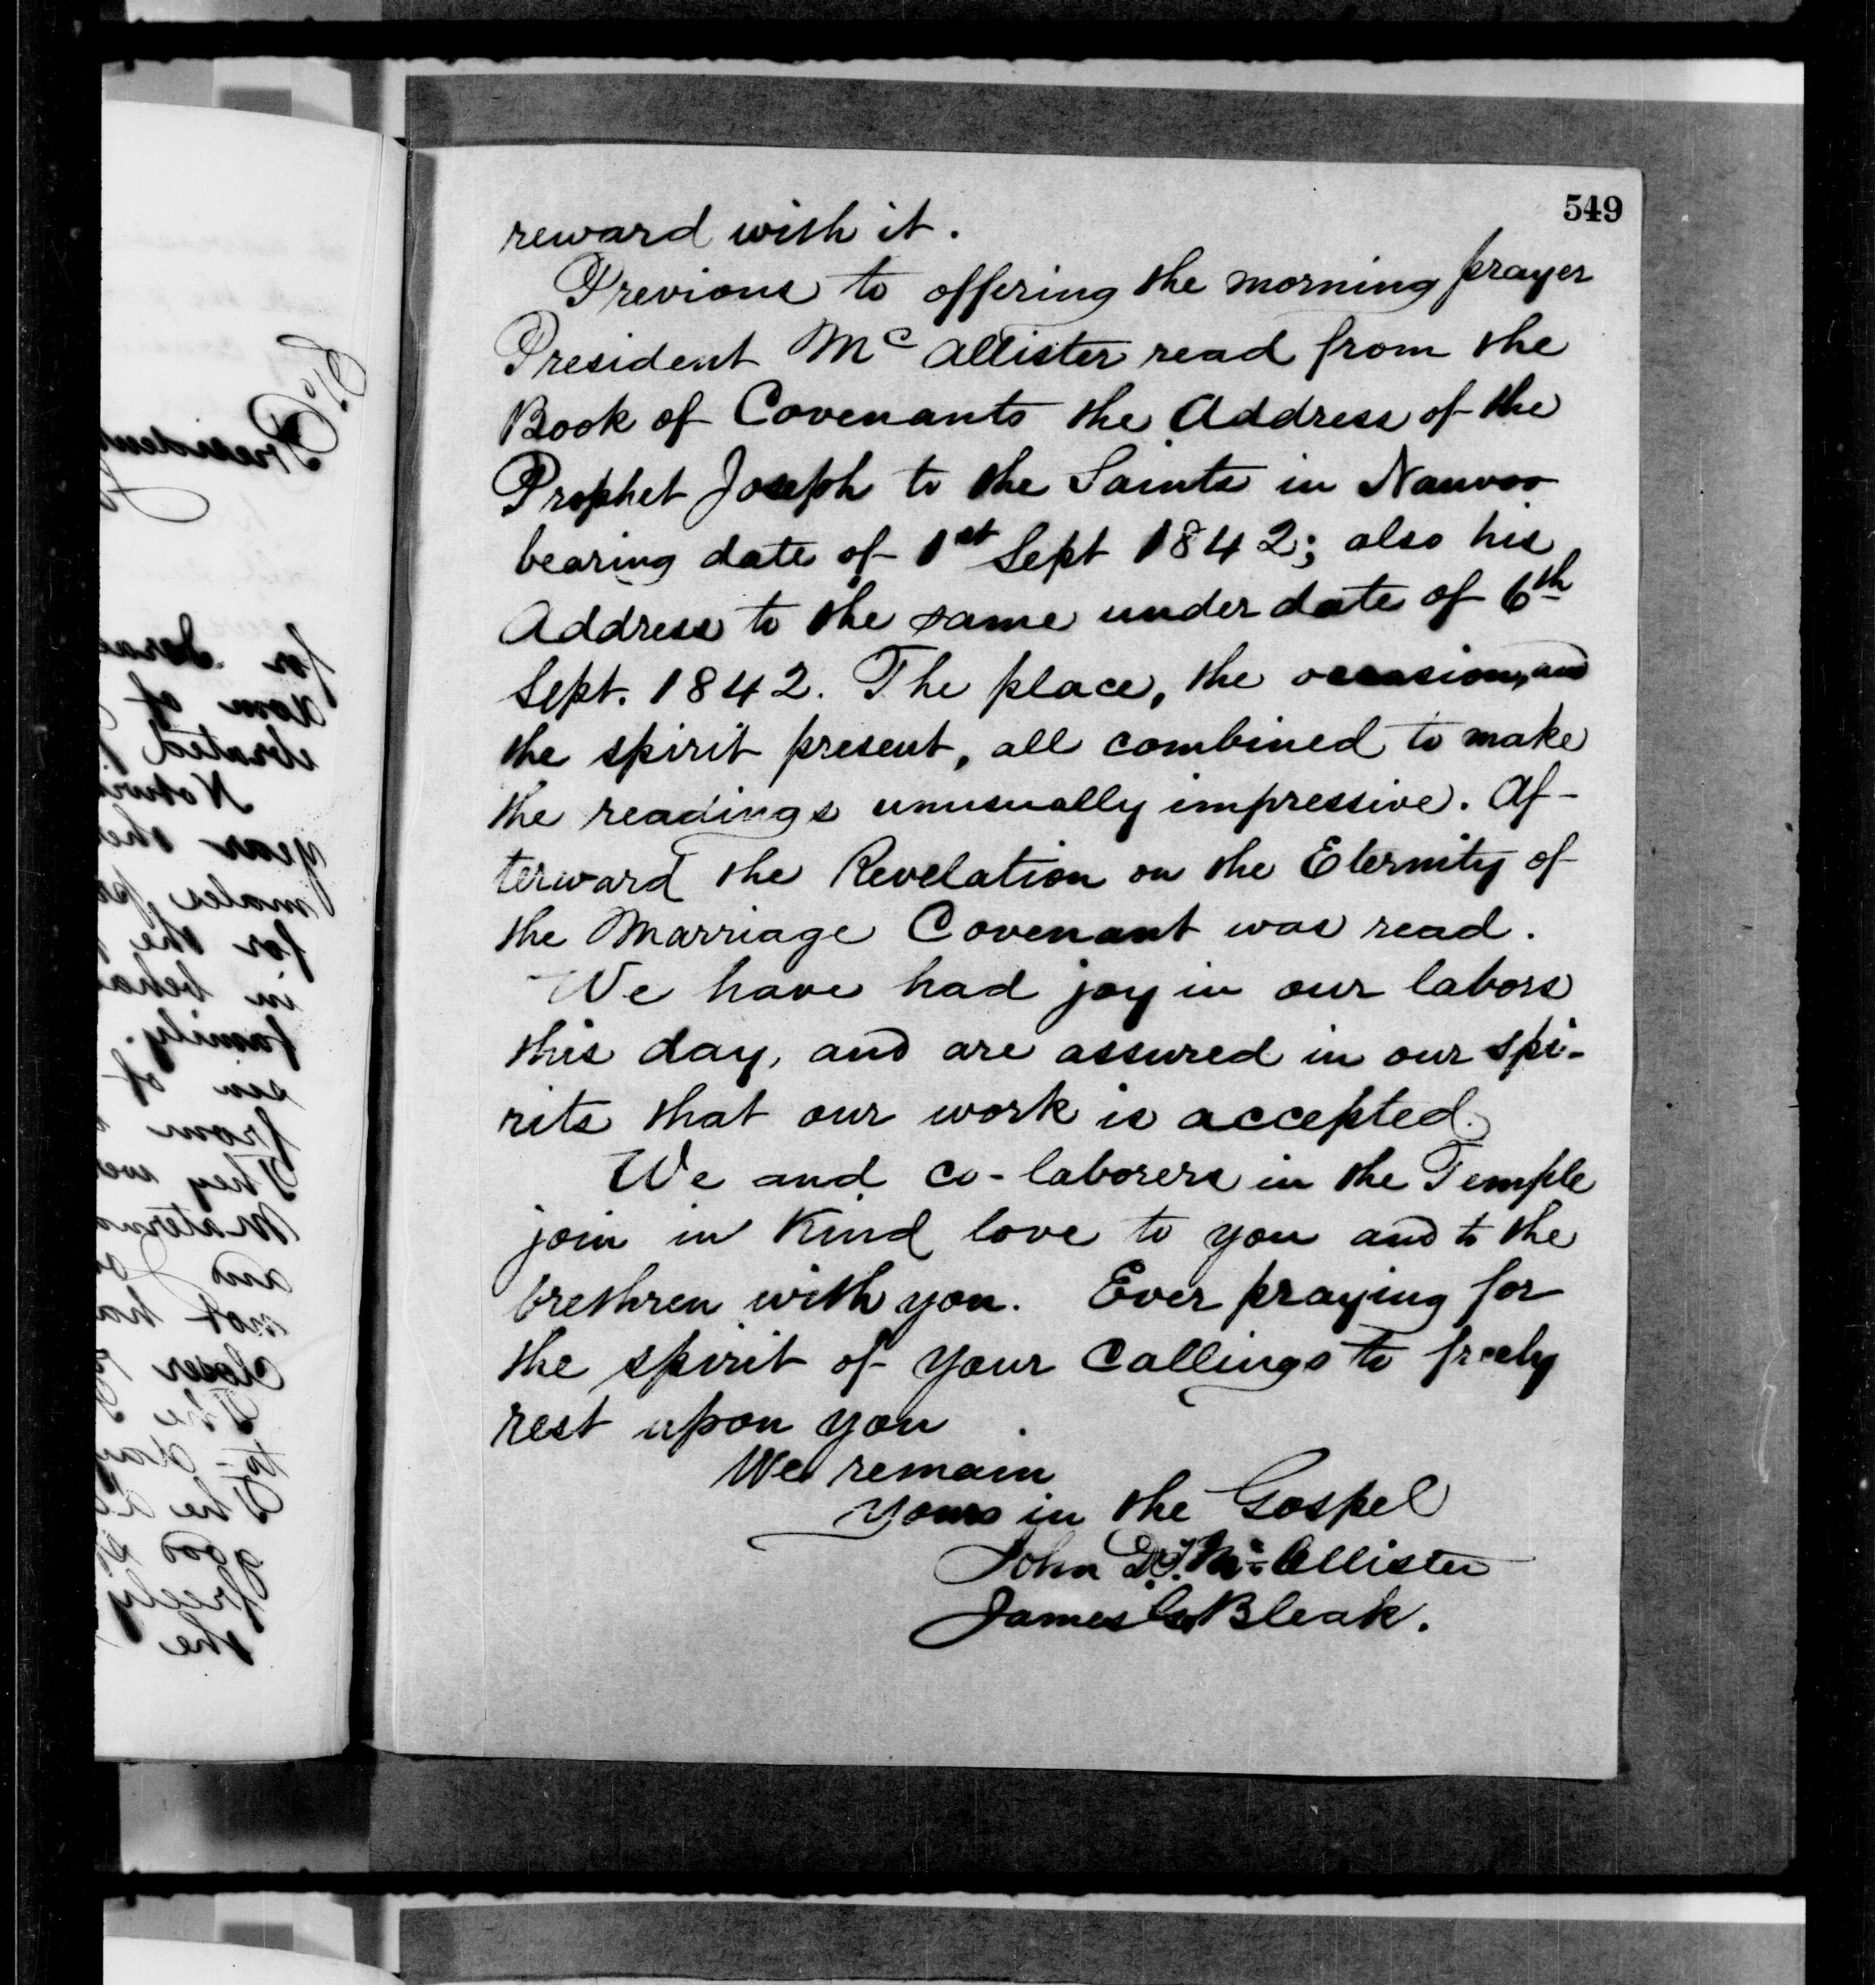 549
reward with it.
Previous to offering the morning prayer
President Mc Allister read from the
Book of Covenants the Address of the
Prophet Joseph to the Saints in Nauvoo
bearing date of 1st Sept 1842; also his
Address to the same under date of 6th
Sept. 1842. The place, the occasion, and
the spirit present, all combined to make
the readings unusually impressive. Af-
terward the Revelation on the Eternity of
the Marriage Covenant was read.
We have had joy in our labors
this day, and are assured in our spi-
rits that our work is accepted.
We and co-laborers in the Temple
join in Kind love to you and to the
brethren with you. Ever praying for
the spirit of your Callings to freely
rest upon you.
We remain
Yours in the Gospel
John D. T. Mc Allister
James G. Bleak.